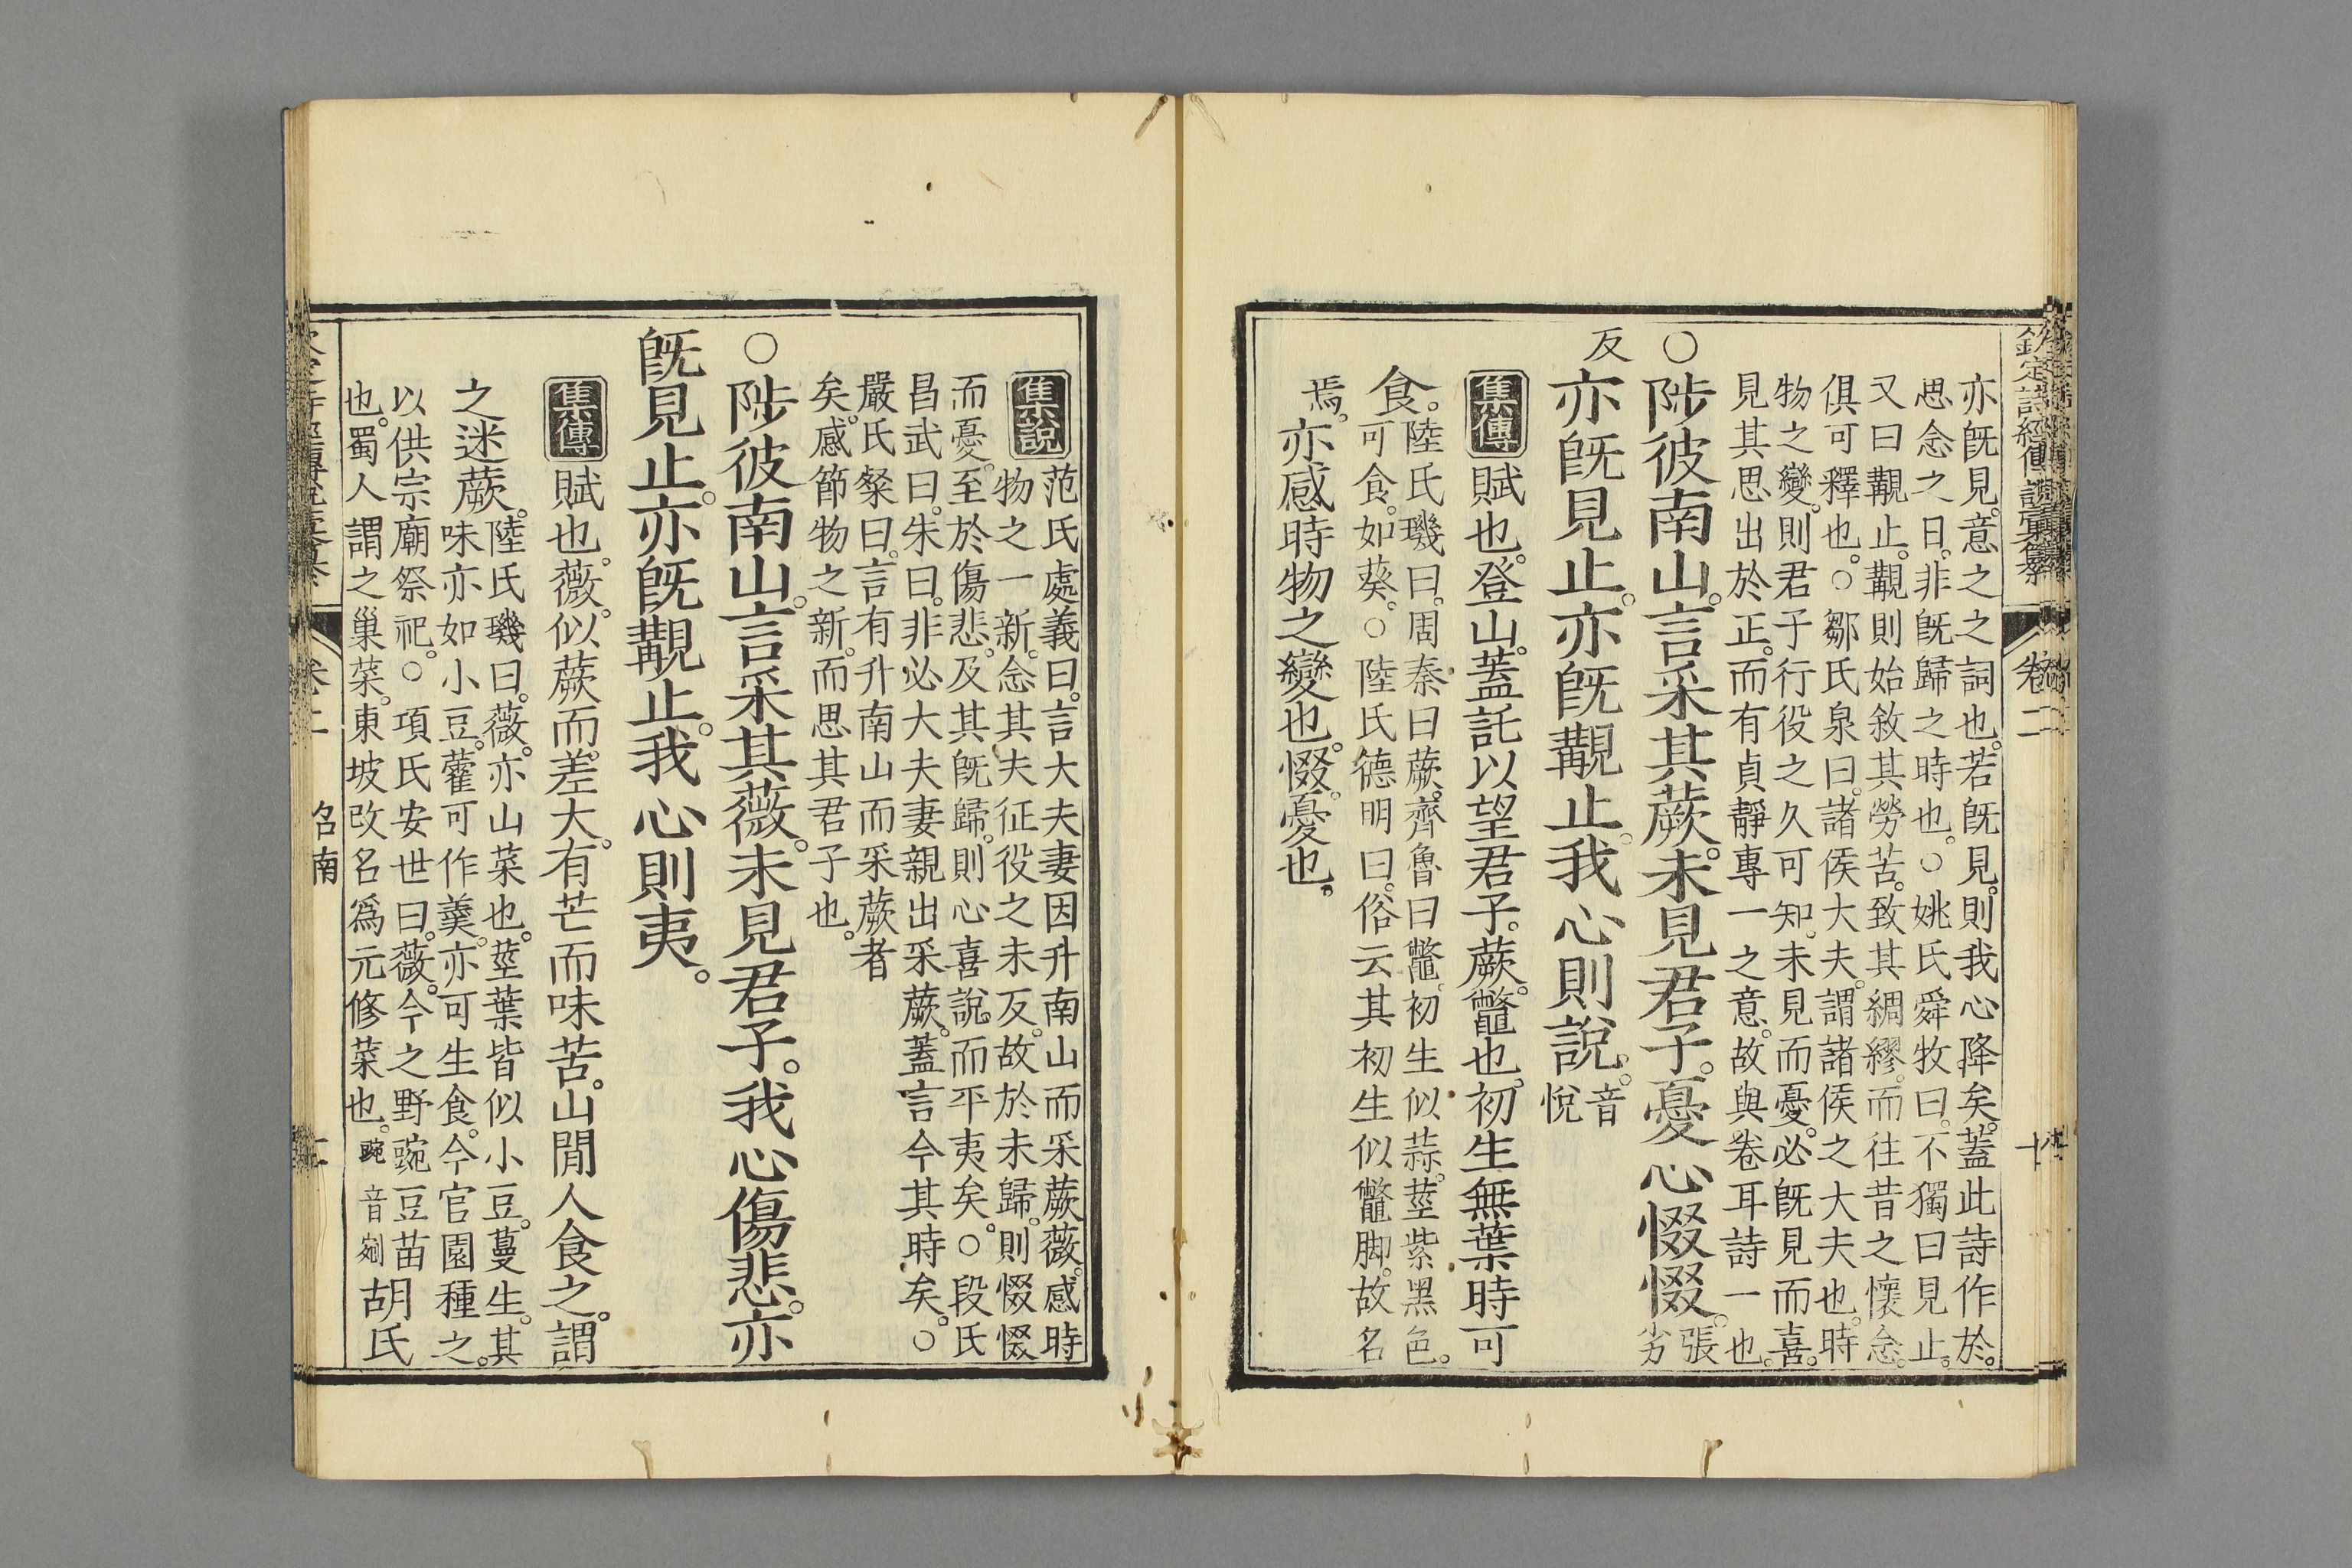 欽定詩經傳說彙纂 卷二 十
亦旣見。意之之詞也。若旣見。則我心降矣。蓋此詩作於。
思念之日。非旣歸之時也。○姚氏舜牧曰。不獨曰見止。
又曰覯止。覯則始敘其勞苦。致其綢繆。而往昔之懷念。
俱可釋也。○鄒氏泉曰。諸侯大夫。謂諸侯之大夫也。時
物之變。則君子行役之久可知。未見而憂。必旣見而喜。
見其思出於正。而有貞靜專一之意。故與卷耳詩一也。
○陟彼南山。言采其蕨。未見君子。憂心惙惙。張劣
反亦旣見止。亦旣覯止。我心則說。音悅
集傳 賦也。登山。蓋託以望君子。蕨。鼈也。初生無葉時可
食。陸氏璣曰。周秦曰蕨。齊魯曰鼈。初生似蒜。莖紫黑色。
可食。如葵。○陸氏德明曰。俗云其初生似鼈脚。故名
焉。亦感時物之變也。惙。憂也。
集說 范氏處義曰。言大夫妻因升南山而采蕨薇。感時
物之一新。念其夫征役之未反。故於未歸。則惙惙
而憂。至於傷悲。及其旣歸。則心喜說。而平夷矣。○段氏
昌武曰。朱曰。非必大夫妻親出采蕨。蓋言今其時矣。○
嚴氏粲曰。言有升南山而采蕨者
矣。感節物之新。而思其君子也。
○陟彼南山。言采其薇。未見君子。我心傷悲。亦
旣見止。亦旣覯止。我心則夷。
集傳 賦也。薇。似蕨而差大。有芒而味苦。山閒人食之。謂
之迷蕨。陸氏璣曰。薇。亦山菜也。莖葉皆似小豆。蔓生。其
味亦如小豆。藿可作羹。亦可生食。今官園種之。
以供宗廟祭祀。○項氏安世曰。薇。今之野豌豆苗
也。蜀人謂之巢菜。東坡改名爲元修菜也。豌音剜胡氏
卷二 召南